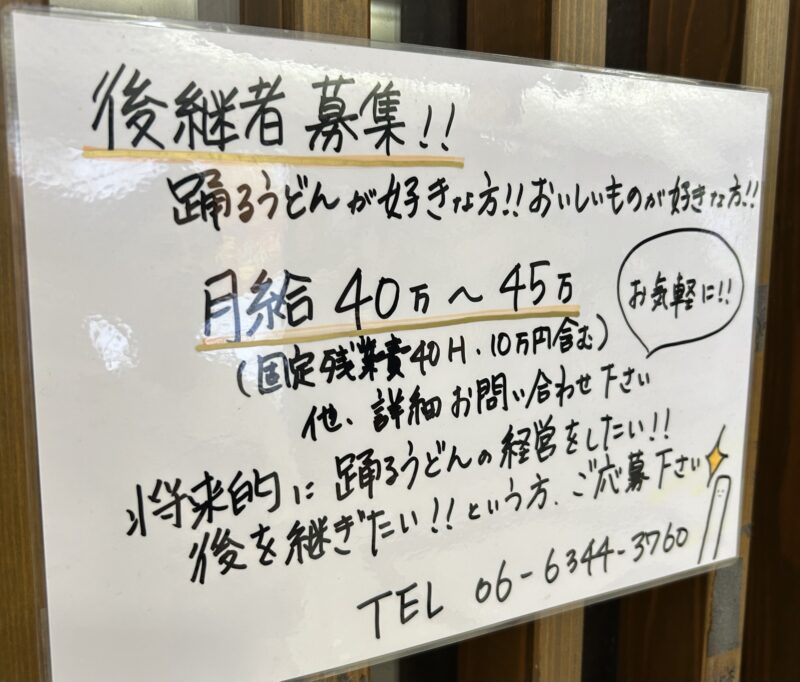 後継者 募集!!
踊るうどんが好きな方!! おいしいものが好きな方!!
月給 40万〜45万
お気軽に!!
(固定残業費40H・10万円含む)
他、詳細お問い合わせ下さい
将来的に踊るうどんの経営をしたい!!
後を継ぎたい!!という方、ご応募下さい
TEL 06-6344-3760